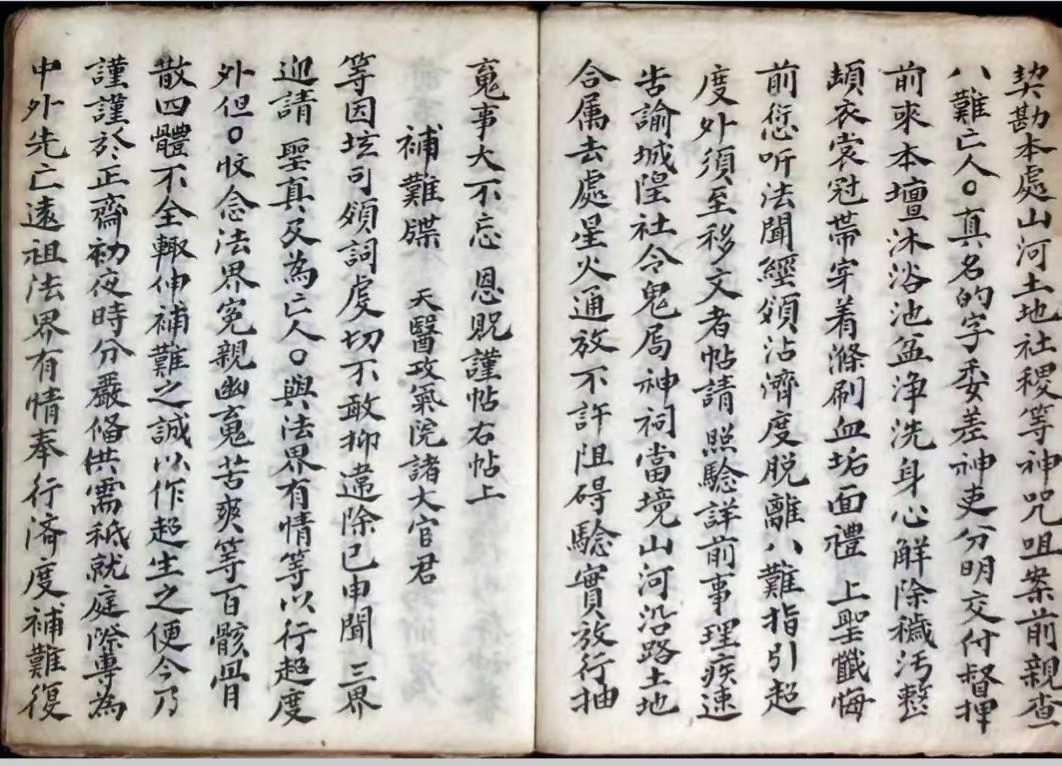 契勘本處山河土地社稷等神咒咀案前親查
八難亡人〇真名的字委差神吏分明交付督押
前來本壇沐浴池盆净洗身心解除穢污整
頓衣裳冠帶穿着滌刷血垢面禮 上聖懺悔
前愆听法聞經頒沾濟度脱離八難指引超
度外須至移文者帖請 照驗詳前事理疾速
告諭城隍社令鬼局神祠當境山河沿路土地
合属去處星火通放不許阻碍驗實放行抽
䰟事大不忘 恩貺謹帖右帖上
補難牒 天醫攻氣院諸大官君
等因垓司頒詞虔切不敢抑違除已申聞 三界
迎請 聖真爻為亡人〇與法界有情等以行超度
外但〇收念法界寃親幽䰟苦爽等百骸骨
散四體不全輙伸補難之誠以作超生之便今乃
謹謹於正齋初夜時分嚴偹供需秪就庭際專為
中外先亡遠祖法界有情奉行済度補難復